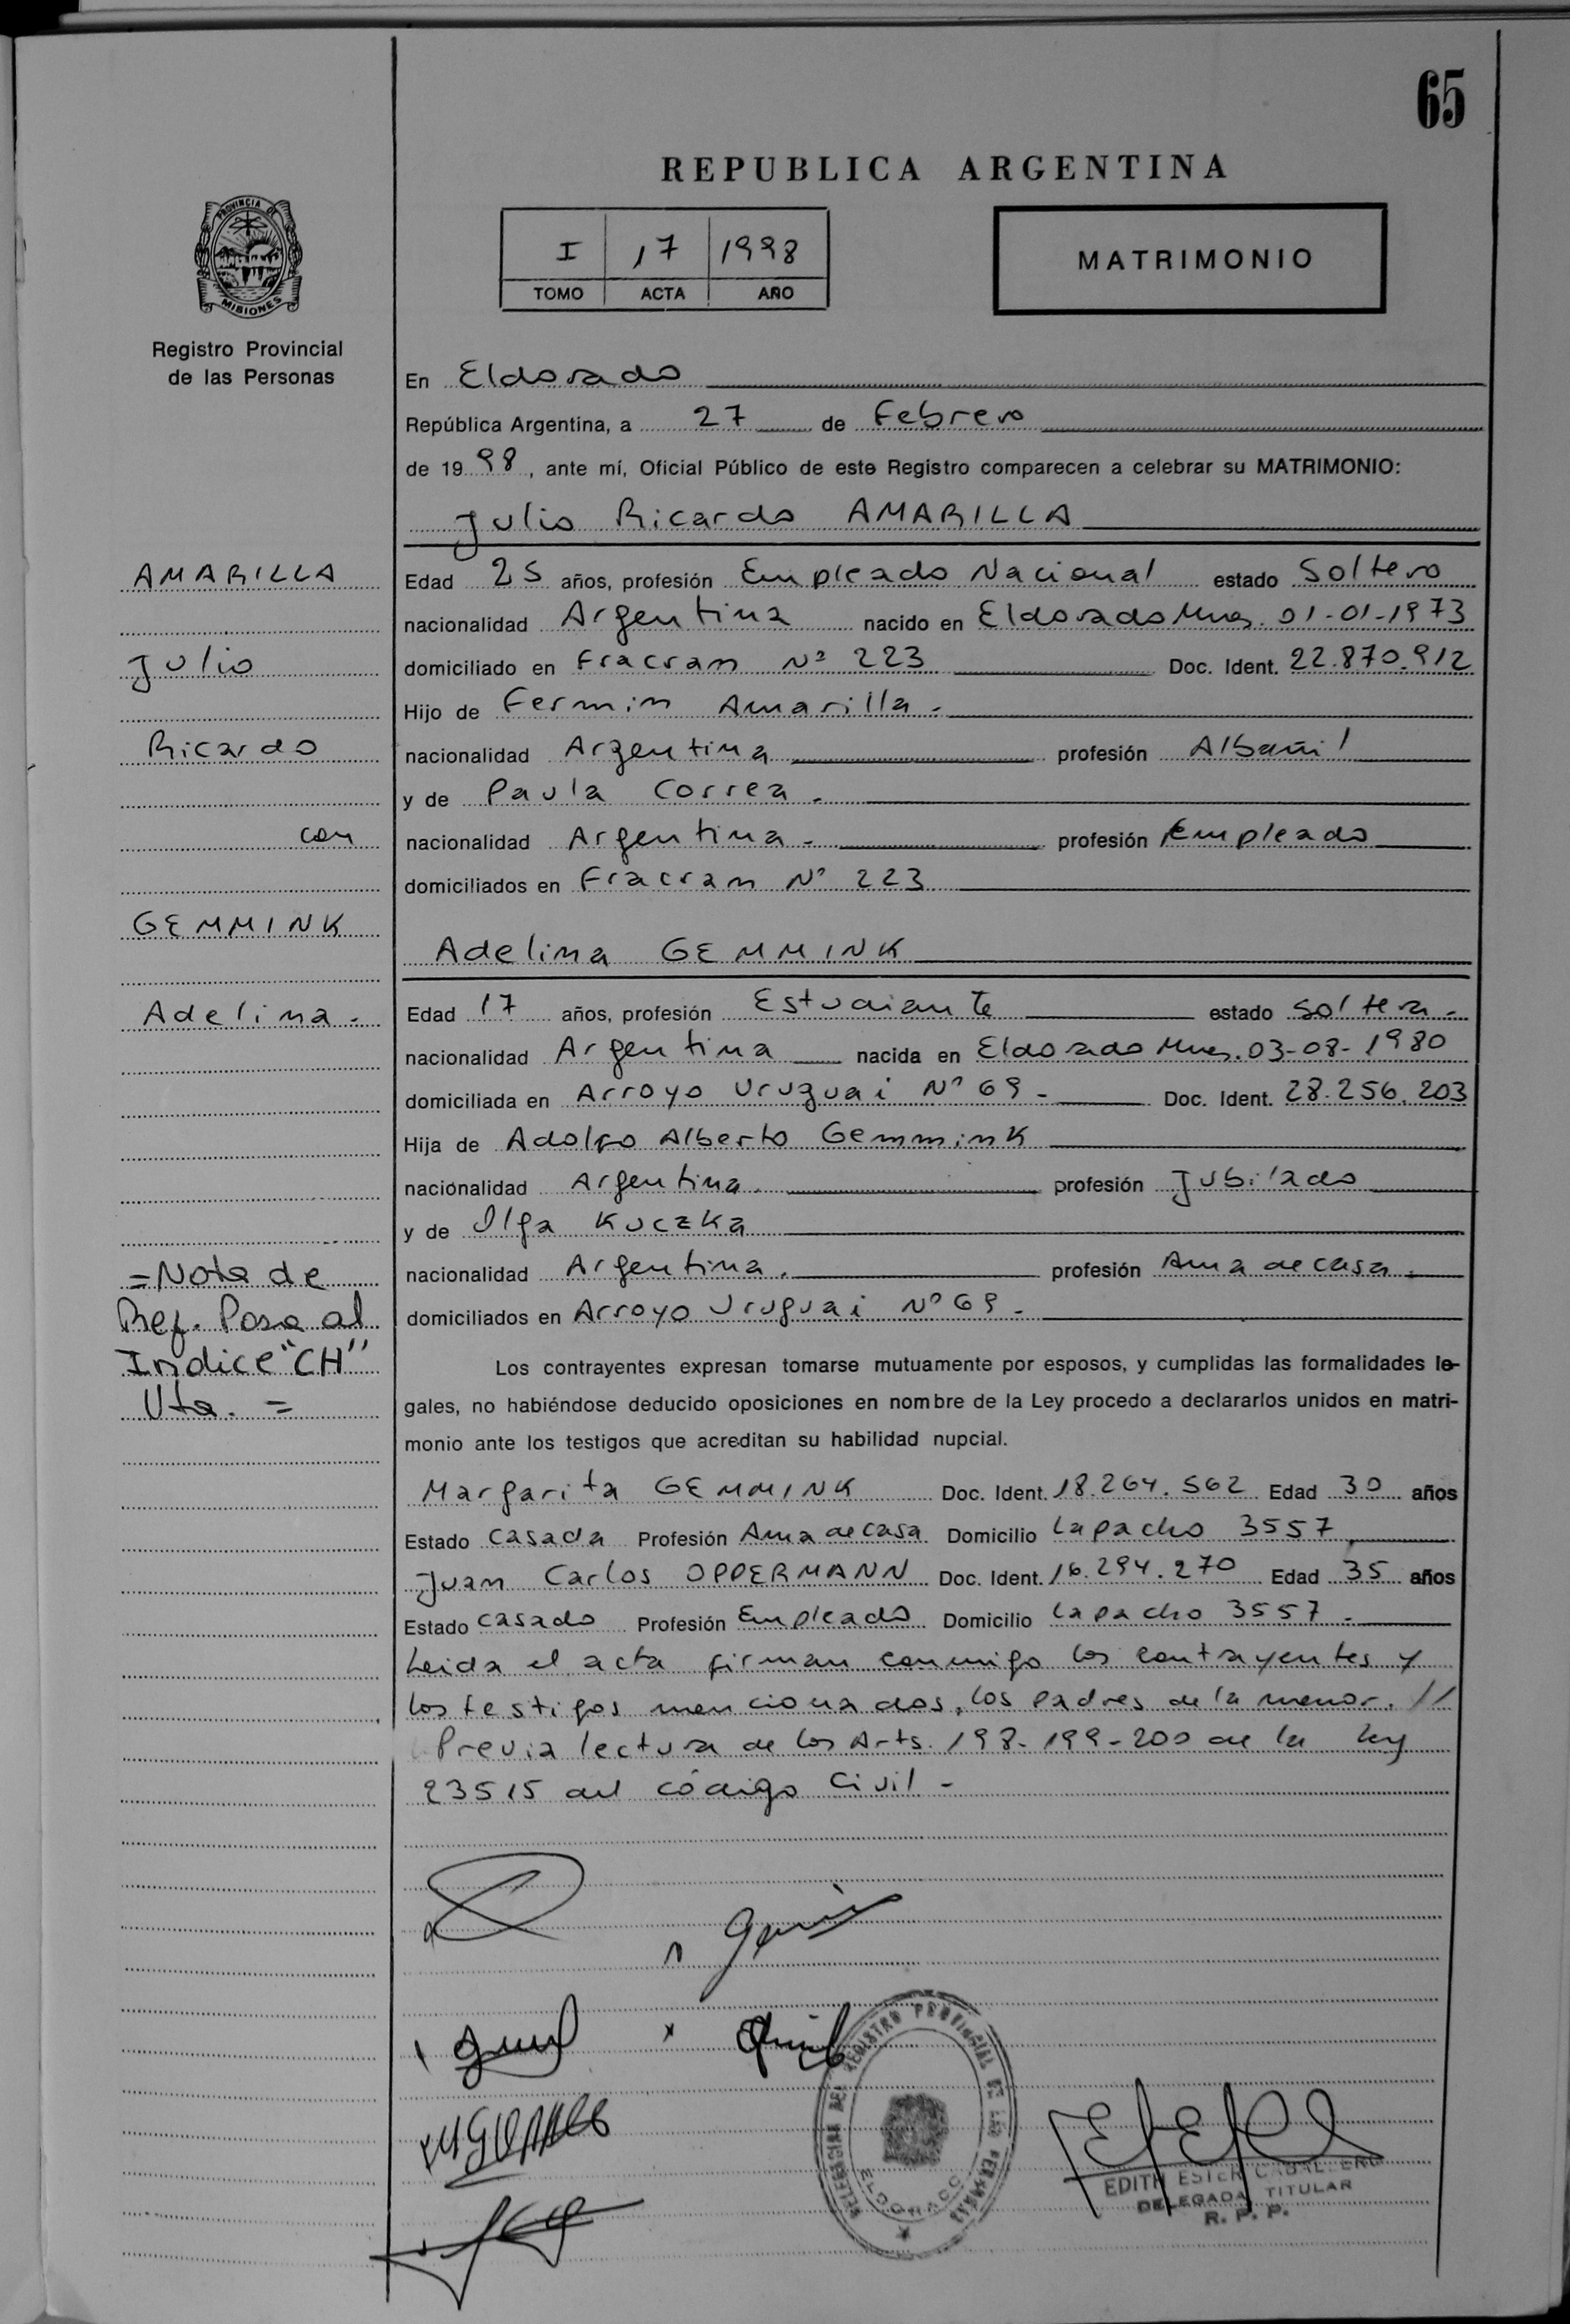 65
REPUBLICA ARGENTINA
PROVINCIA DE
MISIONES
Registro Provincial
de las Personas
I 17 1998
TOMO ACTA AÑO
MATRIMONIO
En Eldorado
República Argentina, a 27 de Febrero
de 1998, ante mí, Oficial Público de este Registro comparecen a celebrar su MATRIMONIO:
Julio Ricardo AMARILLA
AMARILLA
Julio
Ricardo
con
GEMMINK
Adelina.
Edad 25 años, profesión Empleado Nacional estado Soltero
nacionalidad Argentina nacido en Eldorado Mnes. 01-01-1973
domiciliado en Fracran Nº 223 Doc. Ident. 22.870.912
Hijo de Fermin Amarilla.
nacionalidad Argentina profesión Albañil
y de Paula Correa.
nacionalidad Argentina. profesión Empleado
domiciliados en Fracran Nº 223
Adelina GEMMINK
Edad 17 años, profesión Estudiante estado soltera.
nacionalidad Argentina nacida en Eldorado Mnes. 03-08-1980
domiciliada en Arroyo Uruguai Nº 69- Doc. Ident. 28.256.203
Hija de Adolfo Alberto Gemmink
nacionalidad Argentina. profesión Jubilado
y de Olga Kuczka
nacionalidad Argentina. profesión Ama de casa.
domiciliados en Arroyo Uruguai Nº 69-
=Nota de
Ref. Pasa al
Indice "CH"
Uta. =
Los contrayentes expresan tomarse mutuamente por esposos, y cumplidas las formalidades le-
gales, no habiéndose deducido oposiciones en nombre de la Ley procedo a declararlos unidos en matri-
monio ante los testigos que acreditan su habilidad nupcial.
Margarita GEMMINK Doc. Ident. 18.264.562 Edad 30 años
Estado Casada Profesión Ama de casa Domicilio Lapacho 3557
Juan Carlos OPPERMANN Doc. Ident. 16.294.270 Edad 35 años
Estado casado Profesión Empleado Domicilio Lapacho 3557-
Leida el acta firman conmigo los contrayentes y
los testigos mencionados, los padres de la menor. //
Previa lectura de los Arts. 198-199-200 de la Ley
23515 del código Civil-
DELEGACION DEL REGISTRO PROVINCIAL DE LAS PERSONAS
ELDORADO
EDITH ESTER CABALLERO
DELEGADA TITULAR
R. P. P.